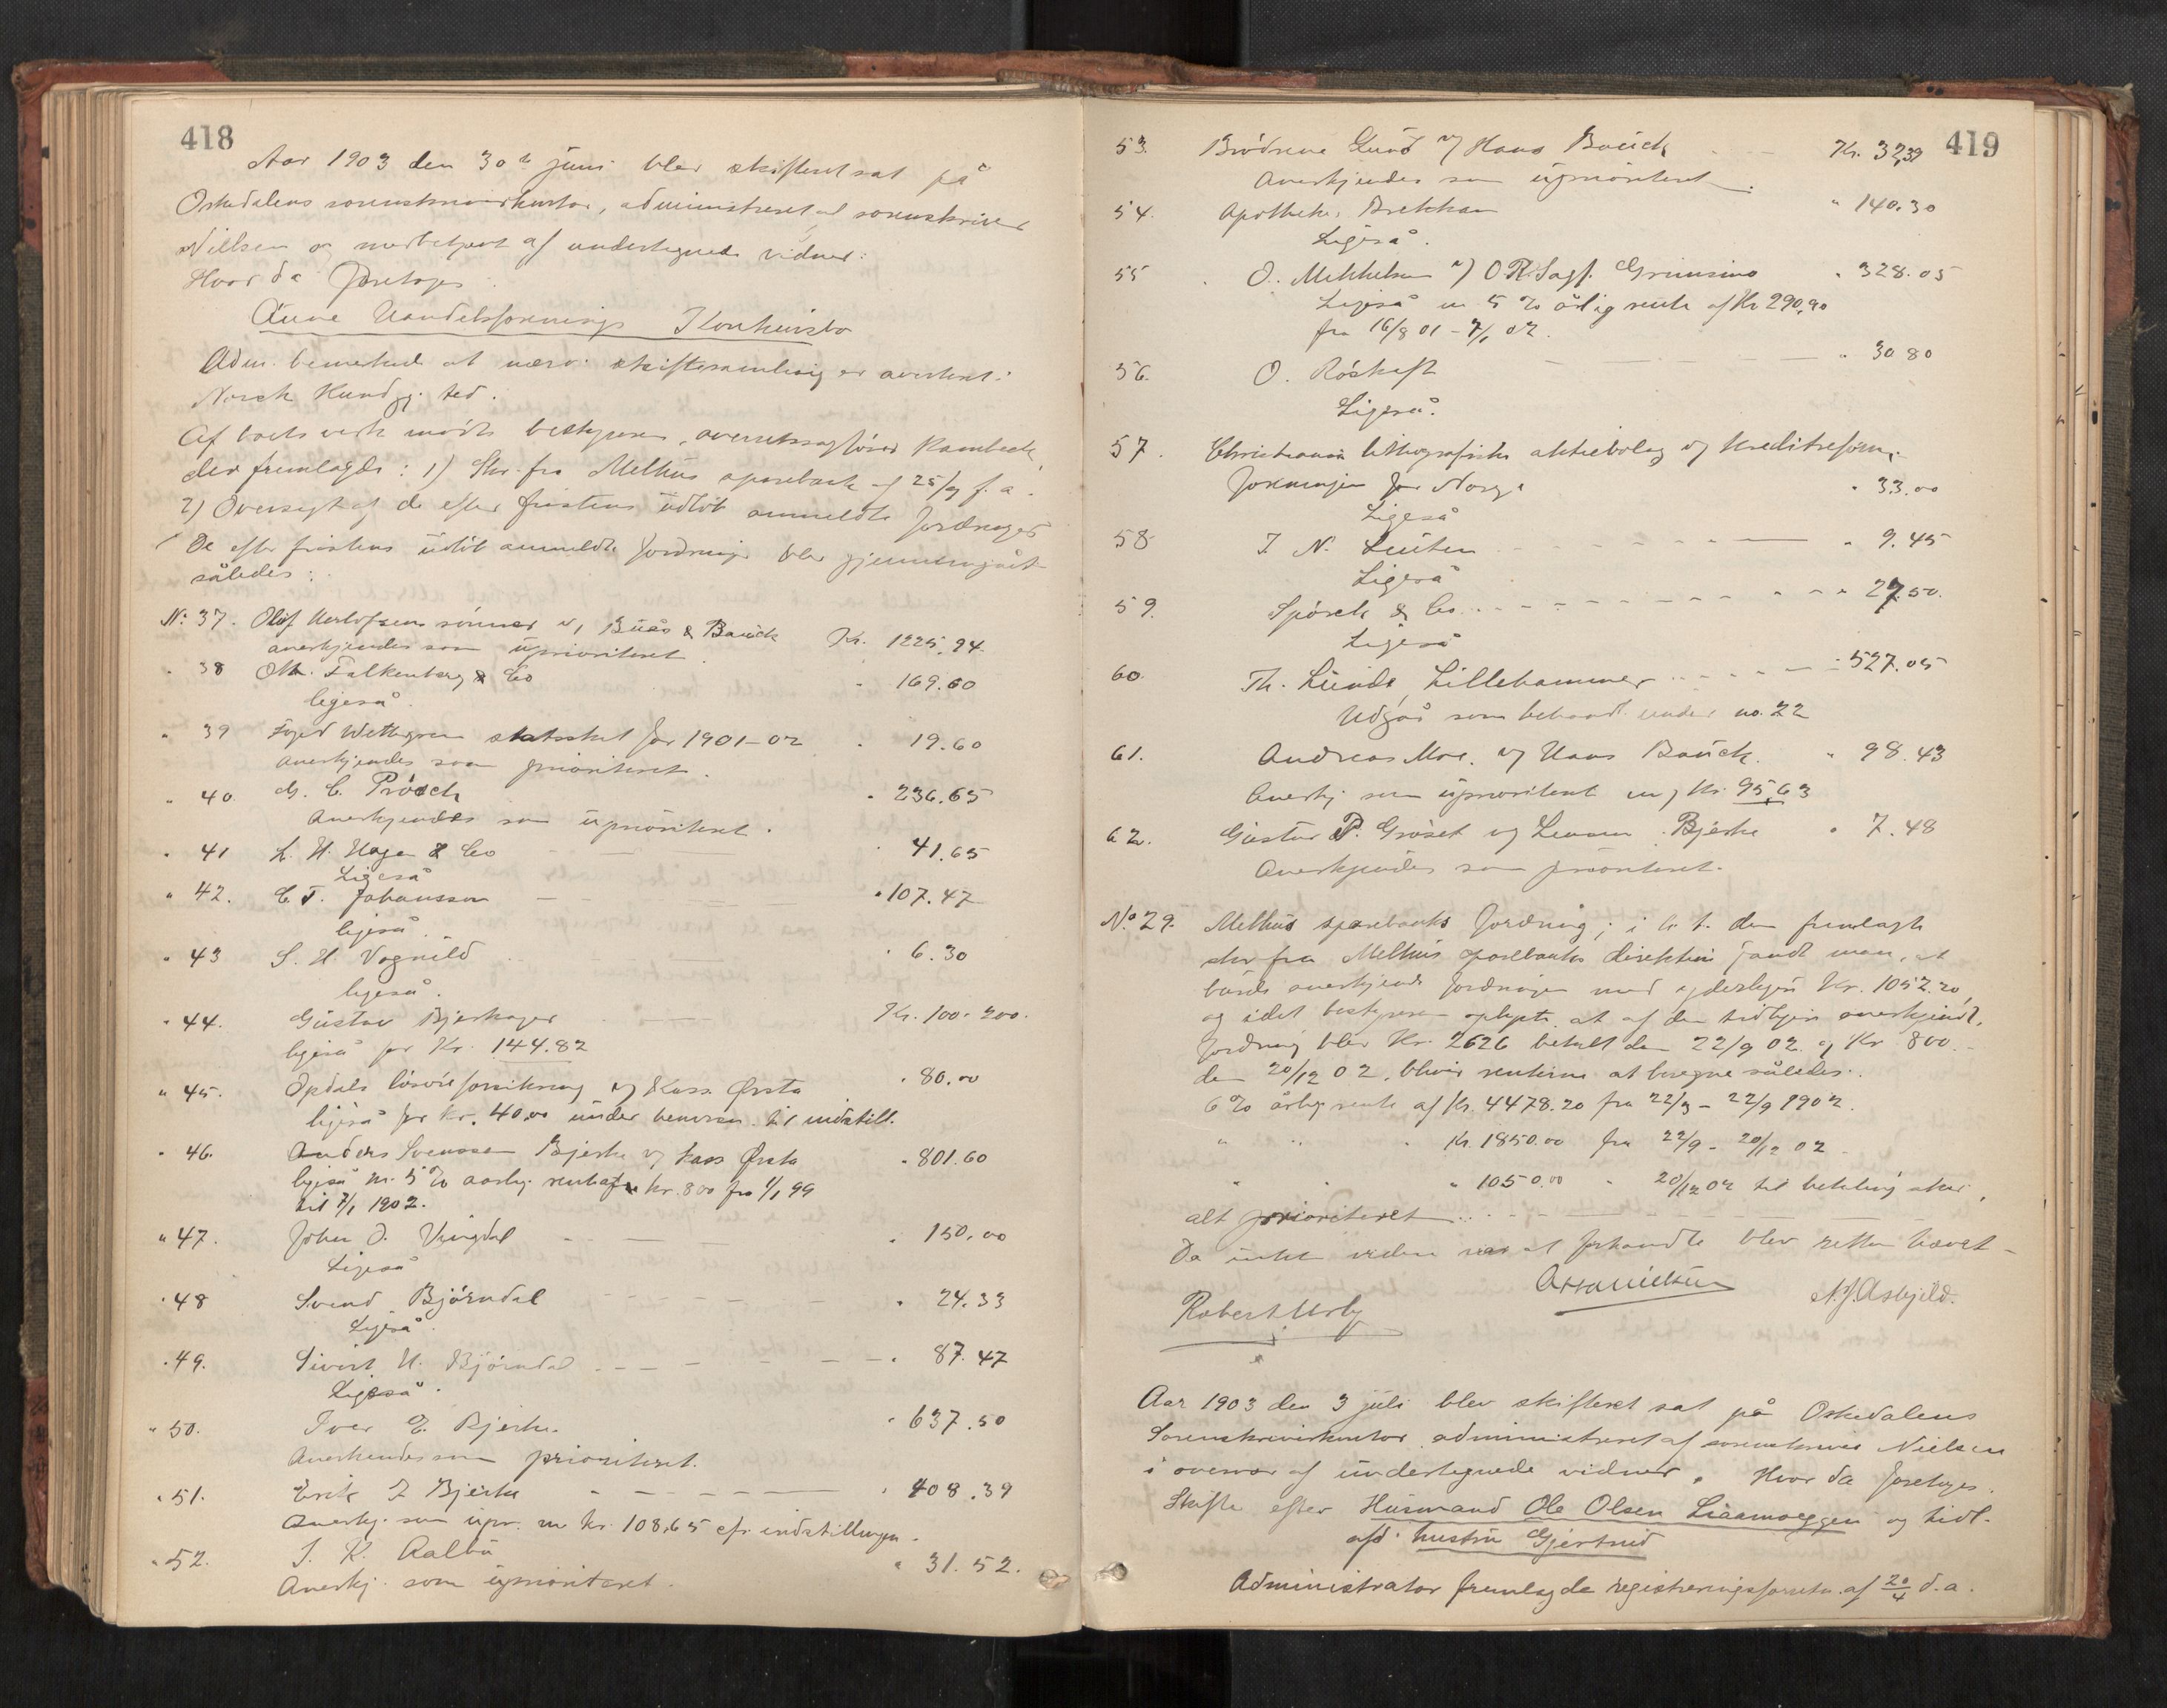 418
Aar 1903 den 30te juni blev skifteret sat på
Orkedalens sorenskriverkontor, administreret af sorenskriver
Nielsen og medbetjent af undertegnede vidner:
Hvor da foretoges:
Aune Handelsforenings Konkursbo
Adm. bemerkede at nærv. skiftesamling er averteret i
Norsk Kundgj. tid.
Af boets verk mødte bestyreren, overretssagfører Rambech,
der fremlagde: 1) Skr. fra Melhus sparebank af 25/9 f. a.
2) Oversigt af de efter fristens udløb anmeldte fordringer
De efter fristens udløb anmeldte fordringer blev gjennemgået
således:
No. 37. Olaf Herlofsens sønner v/ Buås & Bauck Kr. 1225.94.
anerkjendes som uprioriteret.
" 38 Oth. Falkenberg & Co " 169.60
ligeså.
" 39 Foged Wettergren statsskat for 1901-02 " 19.60
anerkjendes som prioriteret.
" 40. G. C. Prösch " 236.65
Anerkjendes som uprioriteret.
" 41 L. H. Hagen & Co " 41.65
Ligeså
" 42. C. F. Johansson " 107.47
ligeså.
" 43 S. H. Vognild " 6.30
ligeså.
" 44. Gustav Bjerkager Kr. 100.200.
ligeså for Kr. 144.82
" 45. Opdals løsøreforsikring v/ Kass. Ørsta " 80.00
ligeså for kr. 40.00 under henvisn. til indstill.
" 46. Anders Svensson Bjerke v/ kass Ørsta " 801.60
ligeså m. 5% aarlig rente af kr. 800 fra 1/1 99
til 7/1 1902.
" 47. John J. Vingdal " 150.00
Ligeså
" 48 Svend Bjørndal " 24.33
Ligeså.
" 49. Sivert H. Bjørndal " 87.47
Ligeså.
" 50. Iver E. Bjerke " 637.50
Anerkendes som prioriteret.
" 51. Erik I Bjerke " 408.39
Anerkj. som upr. m kr. 108.65 cfr. indstillingen.
" 52. J. K. Aalbu " 31.52.
Anerkj. som uprioriteret.
419
53. Brødrene Lund v/ Hans Bauck Kr. 32,39
Anerkjendes som uprioriteret.
54. Apotheker Brekkan " 140.30
Ligeså.
55 O. Mikkelsen v/ O.R. Sagf. Grimsmo " 328.05
Ligeså m 5% årlig rente af Kr 290,90
fra 16/8 01 - 7/1 02.
56. O. Röskaft " 30 80
Ligeså.
57. Christiania lithografiske aktiebolag v/ Kreditreform-
foreningen for Norge " 33.00
Ligeså
58 J. N. Linten " 9.45
Ligeså
59. Spörck & Co. " 27.50.
Ligeså
60. Th. Lunde, Lillehammer " 527.05
Udgår som behandl. under no. 22
61. Andreas Moe. v/ Hans Bauck. " 98.43
Anerkj som uprioriteret m/ Kr. 95,63
62. Gustav P. Grøset v/ Lensm. Bjerke " 7.48
Anerkjendes som prioriteret.
No. 29. Melhus sparebanks fordring; i h. t. den fremlagte
skr fra Melhus sparebanks direktion fandt man, at
burde anerkjende fordringen med yderligere Kr. 1052.20,
og idet bestyreren oplyste at af den tidligere anerkjendt.
fordring blev Kr. 2626 betalt den 22/9 02 og Kr 800.-
den 20/12 02, bliver renterne at beregne således:
6% årlig rente af Kr. 4478.20 fra 22/3 - 22/9 1902.
" " " Kr. 1850.00 fra 22/9 - 20/12 02.
" " " 1050.00 " 20/12 02 til betaling sker,
alt prioriteret.
Da intet videre var at forhandle blev retten hævet.
Robert Urby
N. J. Asbjeld.
Aar 1903 den 3 juli blev skifteret sat på Orkedalens
Sorenskriverkontor administreret af sorenskriver Nielsen
i overvær af undertegnede vidner. Hvor da foretoges.
Skifte efter Husmand Ole Olsen Liaamoeggen og tidl.
afd. hustru Gjertrud
Administrator fremlagde registreringsforretn. af 20/4 d.a.